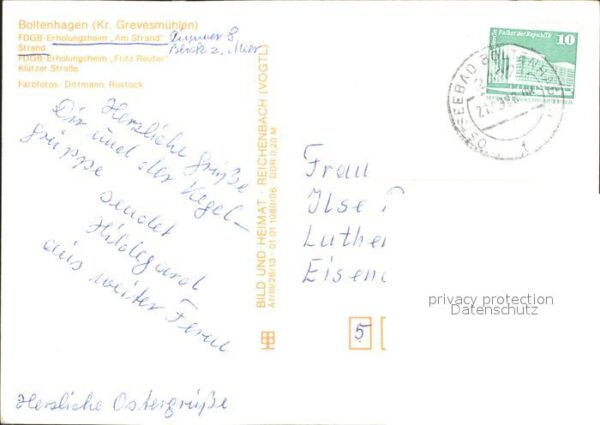 Boltenhagen (Kr. Grevesmühlen)
FDGB-Erholungsheim „Am Strand"
Strand
Zimmer 8
Blick z. Meer
FDGB-Erholungsheim „Fritz Reuter"
Klützer Straße
Farbfotos: Dittmann, Rostock
Herzliche Grüße
Dir und der Kegel-
gruppe
sendet
Hildegard
aus weiter Ferne
Herzliche Ostergrüße
BILD UND HEIMAT · REICHENBACH (VOGTL)
A1/III/26/13 · 01 01 1080/06 GDR 0,20 M
Palast der Republik
10
OSTSEEBAD BOLTENHAGEN
1
Frau
Ilse
Luthe
Eisen
5
privacy protection
Datenschutz